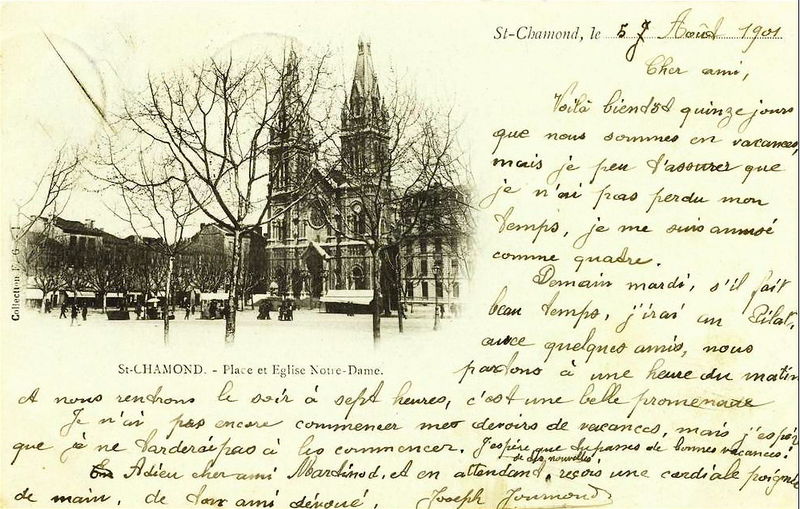 St-Chamond, le 5 Août 1901
Cher ami,
Voilà bientôt quinze jours
que nous sommes en vacances,
mais je peu t'assurer que
je n'ai pas perdu mon
temps, je me suis amusé
comme quatre.
Demain mardi, s'il fait
beau temps, j'irai au Pilat,
avec quelques amis, nous
partons à une heure du matin
et nous rentrons le soir à sept heures, c'est une belle promenade
Je n'ai pas encore commencer mes devoirs de vacances, mais j'espér
que je ne tarderai pas à les commencer. J'espère que tu passes de bonnes vacances.
de des nouvelles
Adieu cher ami Martinod, et en attendant, reçois une cordiale poignée
de main, de ton ami dévoué, Joseph Joumond
St-CHAMOND. - Place et Eglise Notre-Dame.
Collection F. G.